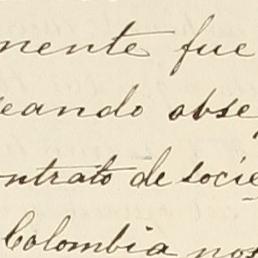 mente fue
eando obse
ontrato de socie
Colombia nos